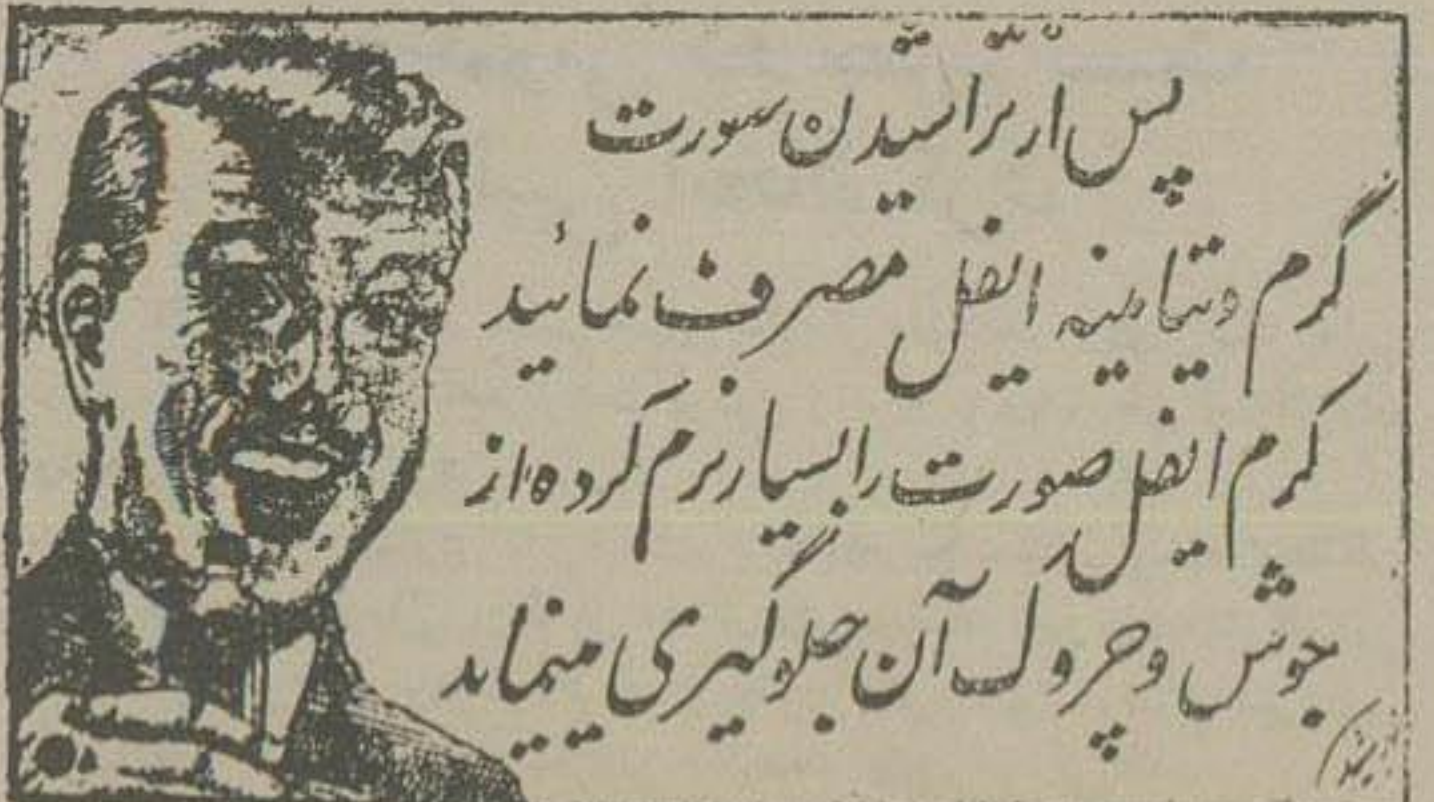 پس از تراشیدن صورت
کرم ویتامینه ایفل مصرف نمائید
کرم ایفل صورت را بسیار نرم کرده از
جوش و چروک آن جلوگیری مینماید